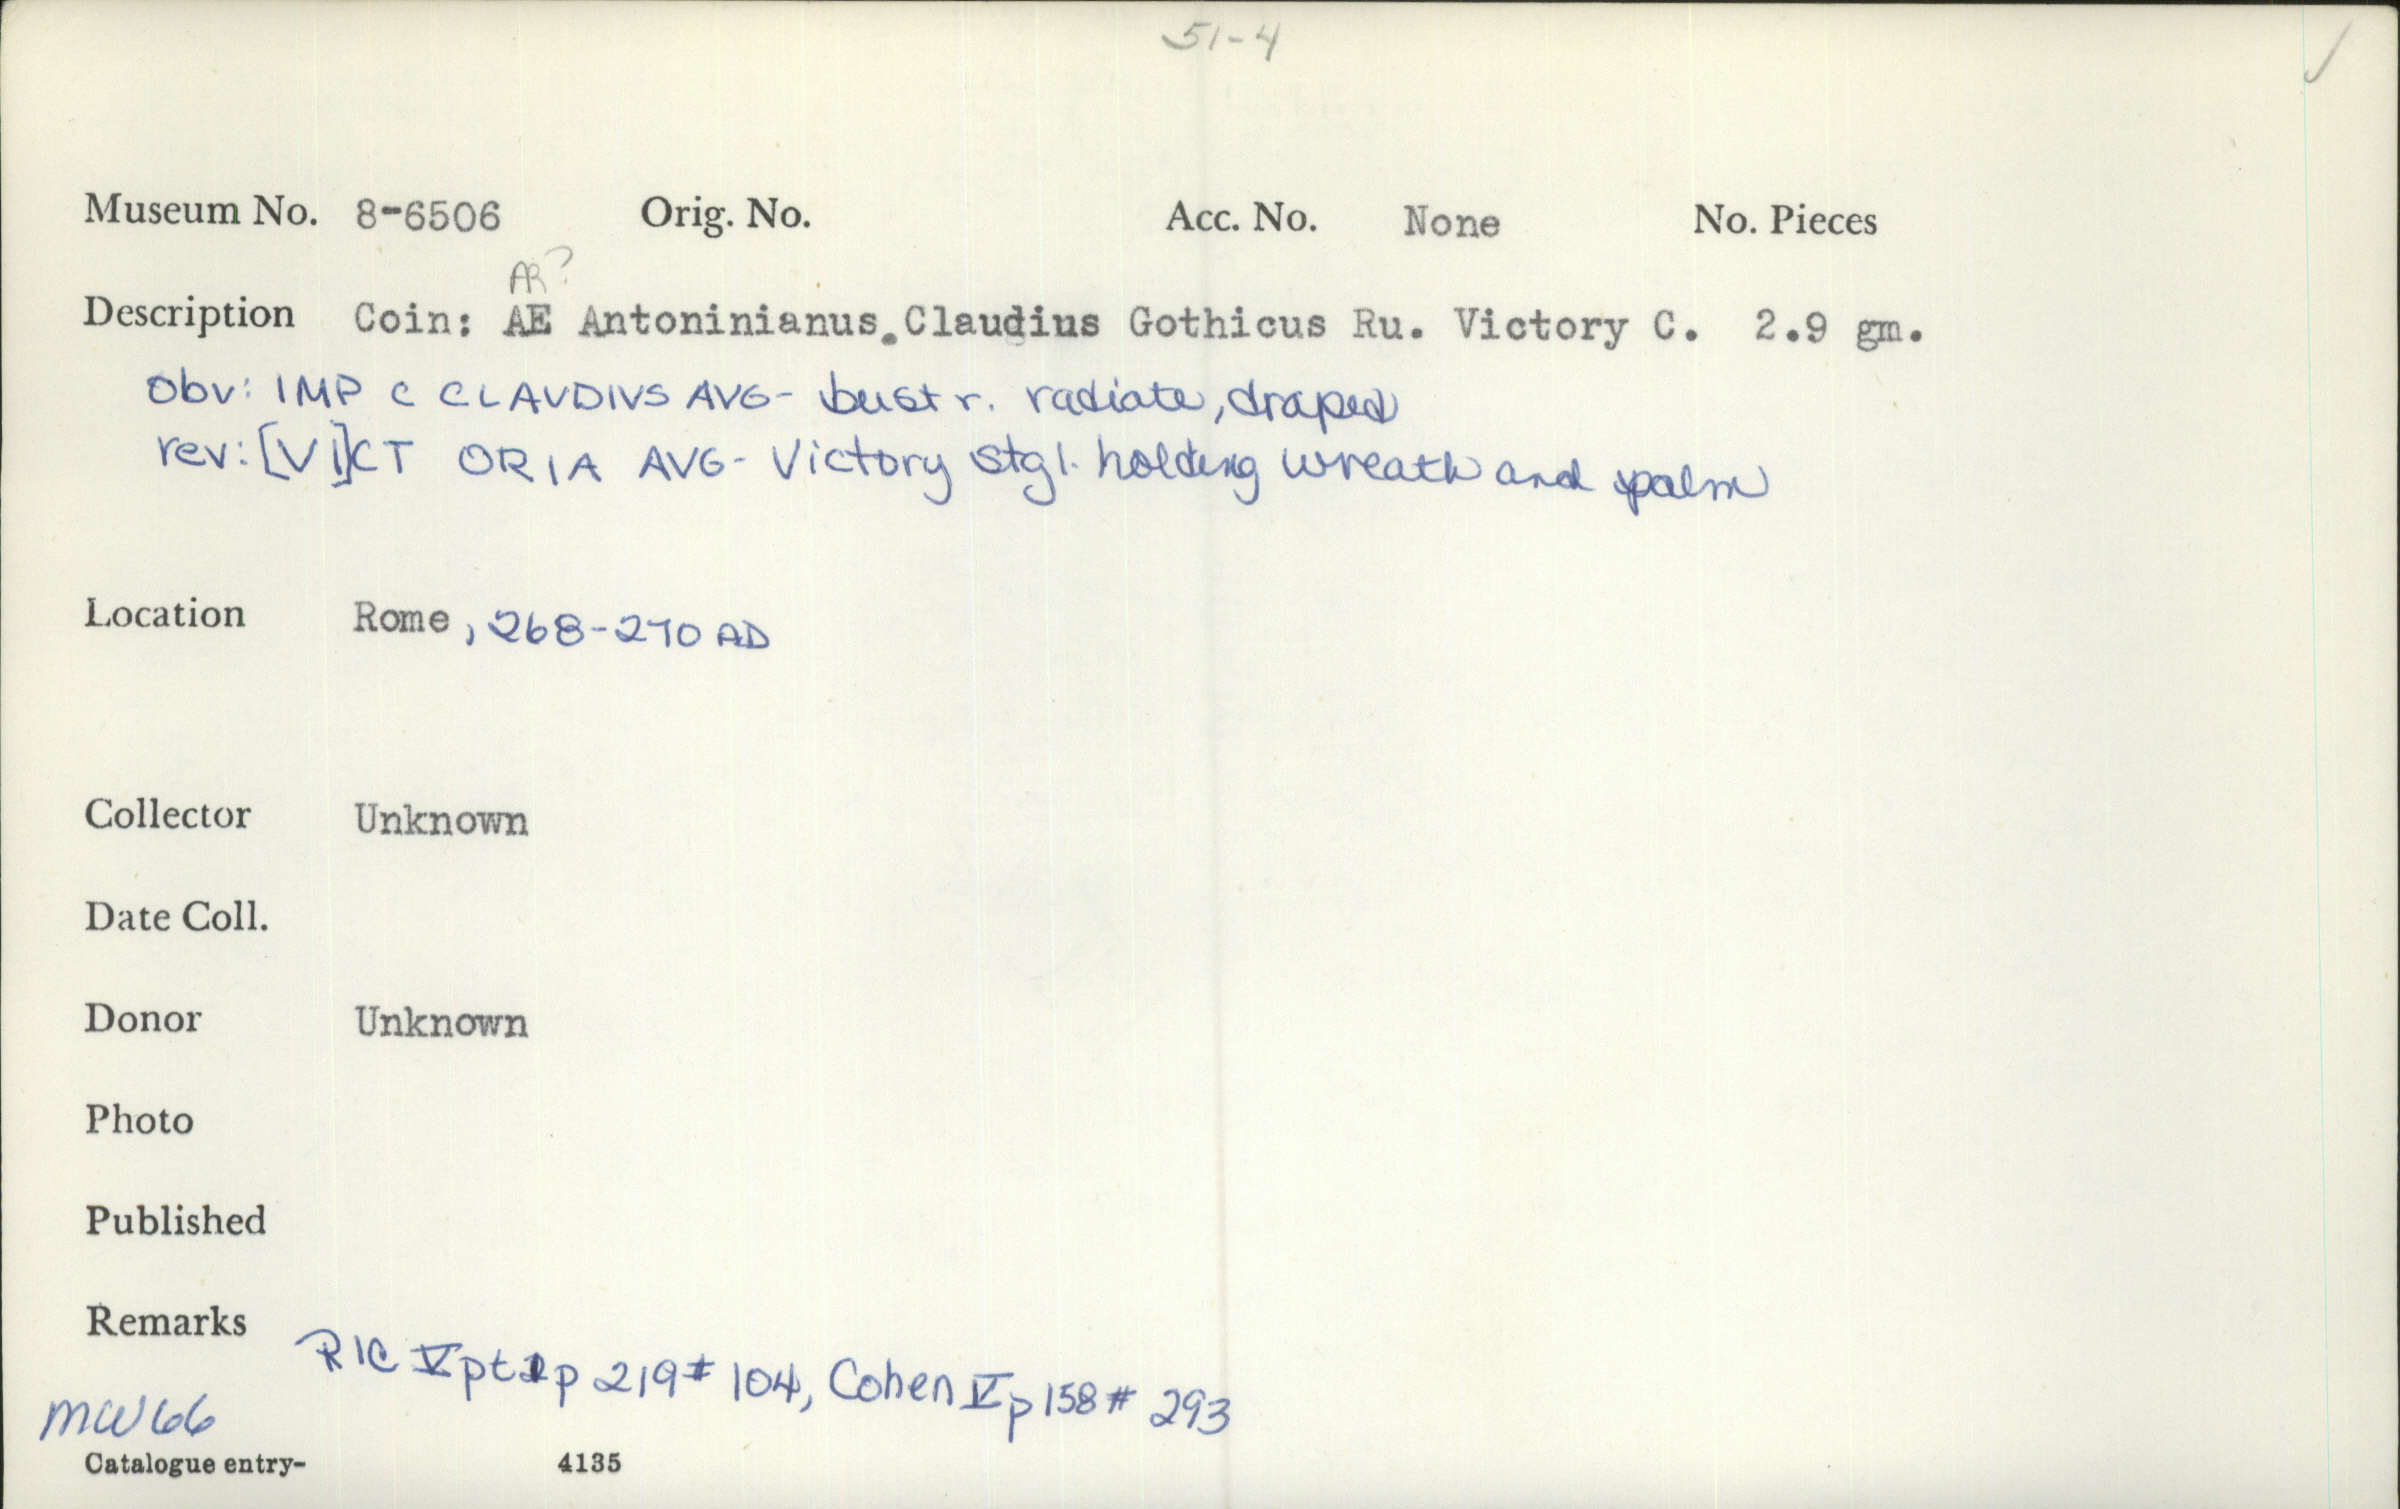 51-4
Museum No. 8-6506 Orig. No. Acc. No. None No. Pieces
AR?
Description Coin: AE Antoninianus. Claudius Gothicus Ru. Victory C. 2.9 gm.
Obv: IMP C CLAVDIVS AVG- bust r. radiate, draped
rev: [VI]CT ORIA AVG- Victory stg l. holding wreath and palm
Location Rome, 268-270 AD
Collector Unknown
Date Coll.
Donor Unknown
Photo
Published
Remarks
RIC V pt 1 p 219 # 104, Cohen V p 158 # 293
MW66
Catalogue entry- 4135